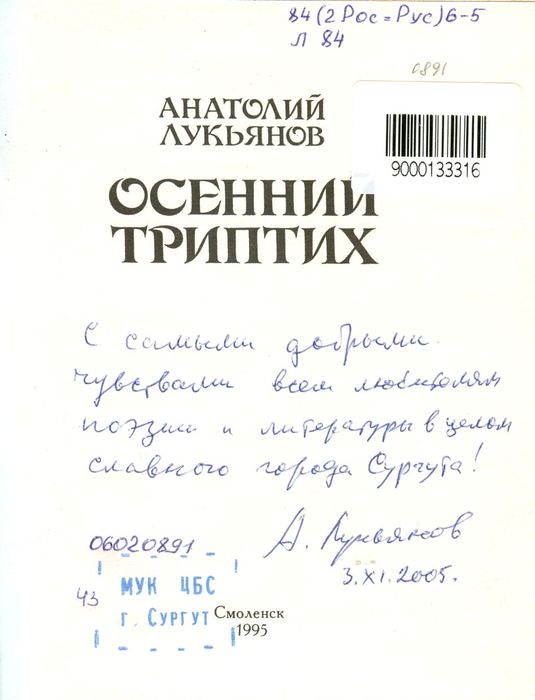 84(2Рос=Рус)6-5
Л 84
0891
АНАТОЛИЙ
ЛУКЬЯНОВ
9000133316
ОСЕННИЙ
ТРИПТИХ
С самыми добрыми
чувствами всем любителям
поэзии и литературы в целом
славного города Сургута!
А. Лукьянов
3.XI.2005.
06020891
МУК ЦБС
ЧЗ
г. СУРГУТ
Смоленск
1995